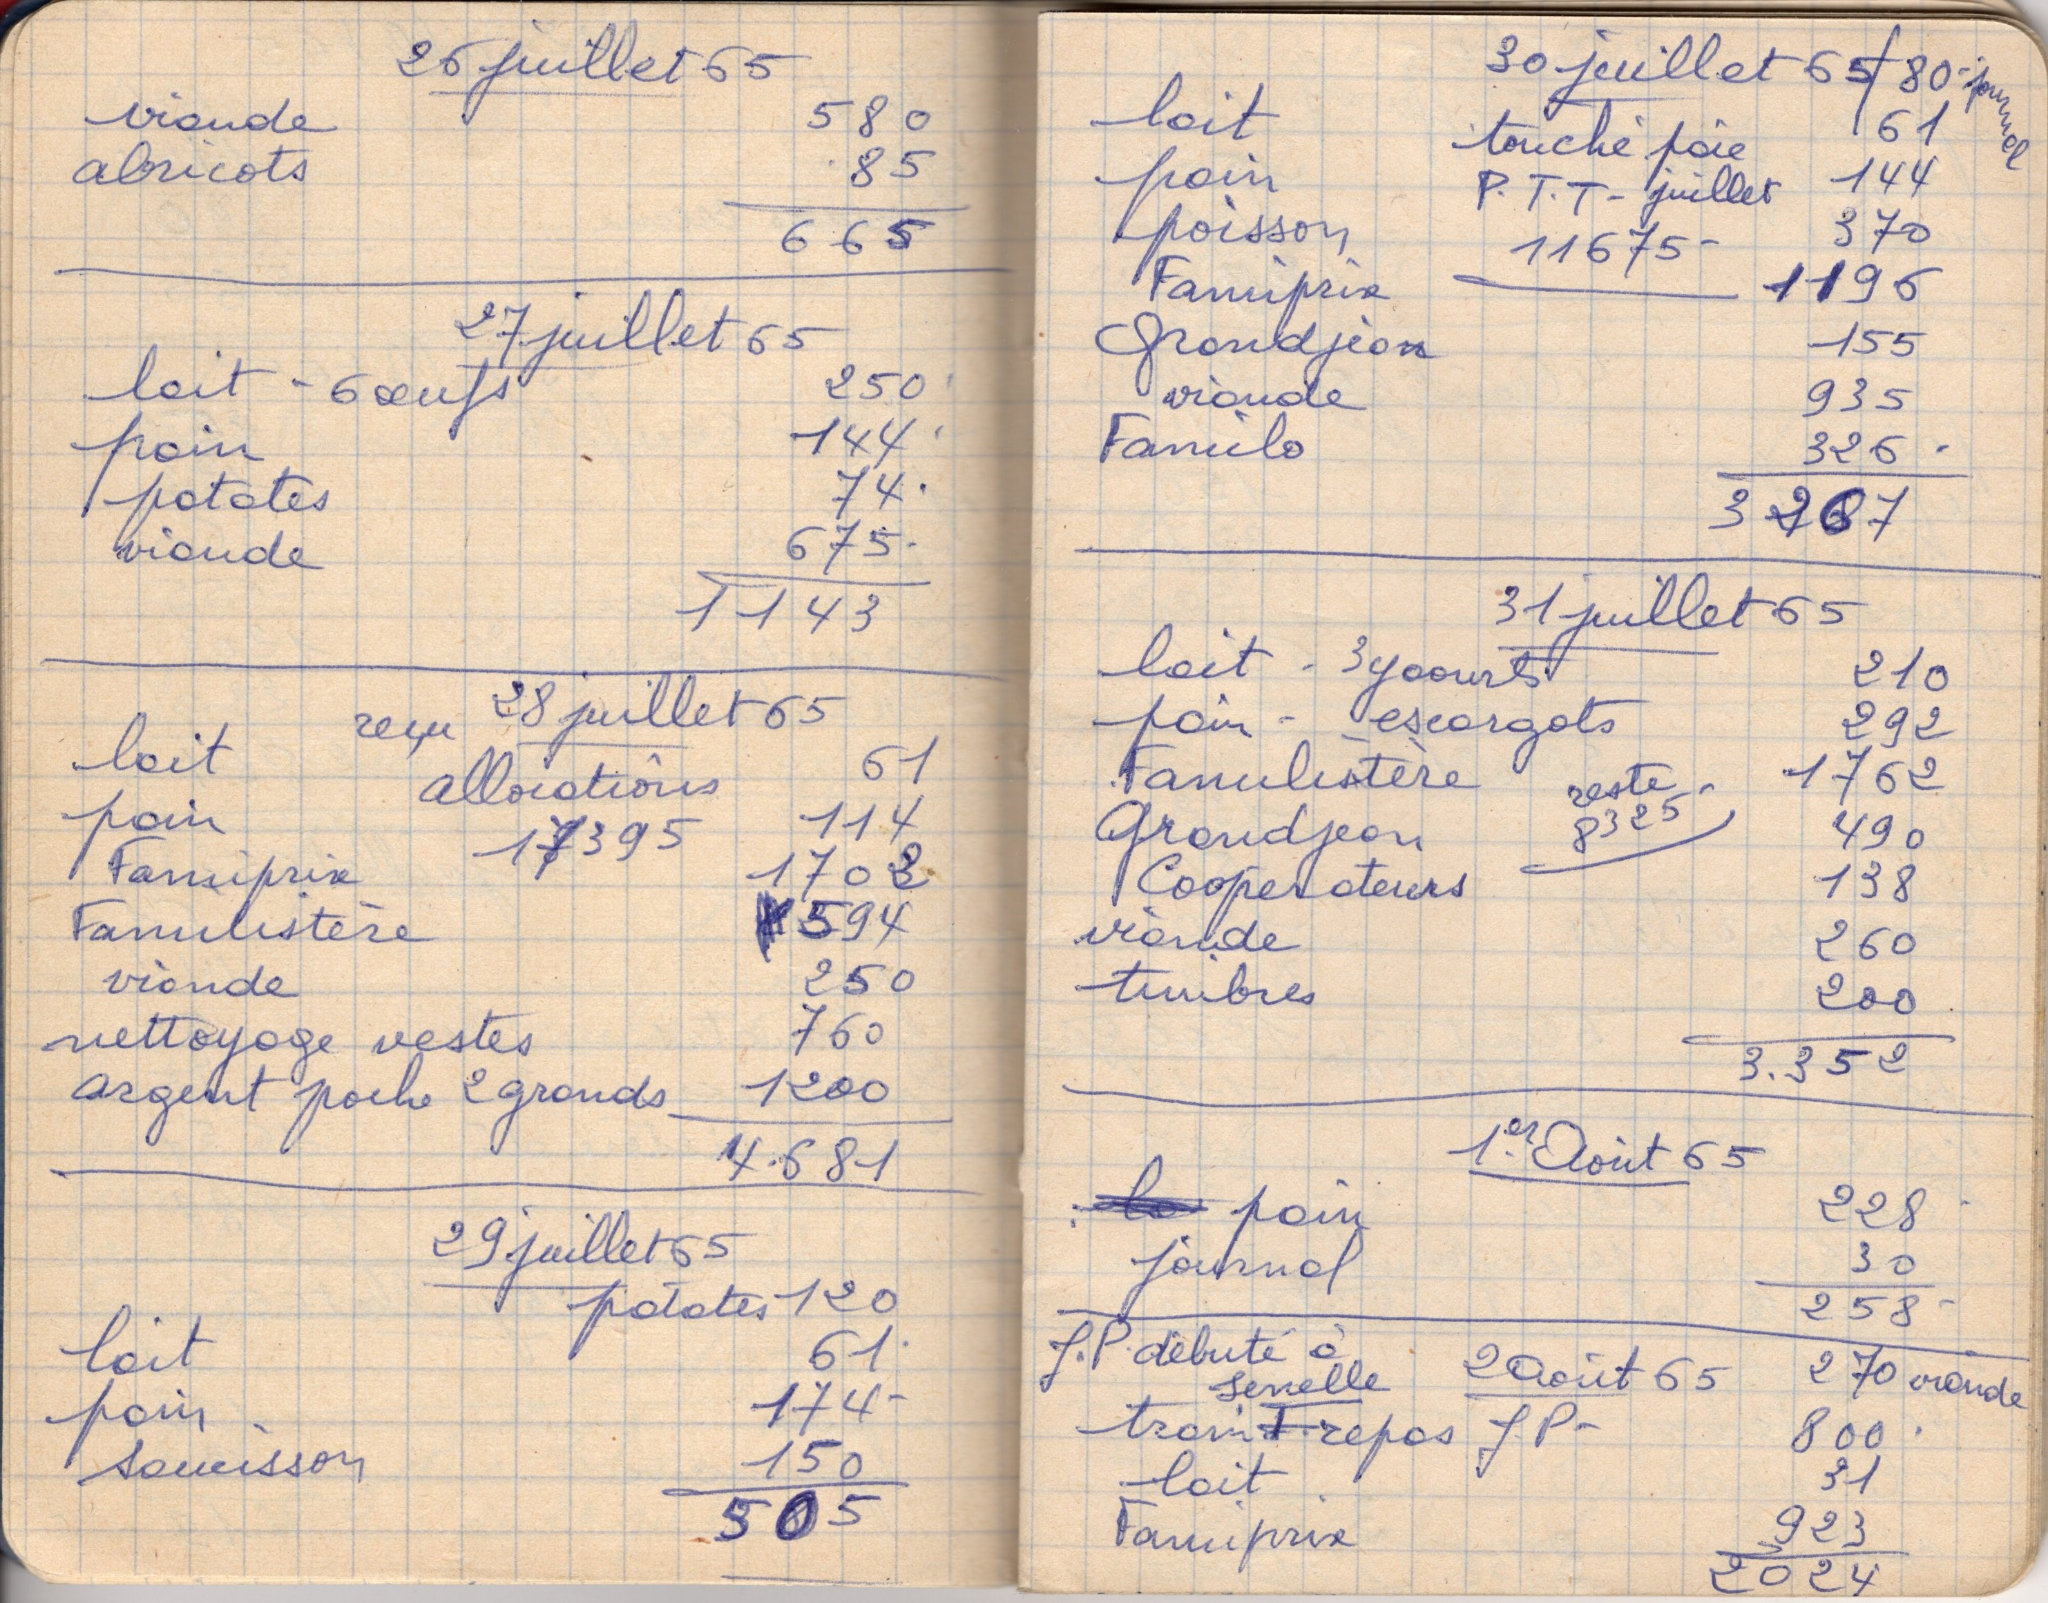 26 juillet 65
viande 580
abricots 85
665
27 juillet 65
lait - 6 œufs 250
pain 144
patates 74
viande 675
1143
28 juillet 65
reçu
lait allocations 61
pain 17395 114
Famiprix 1702
Familistère 594
viande 250
nettoyage vestes 760
argent poche 2 grands 1200
4.681
29 juillet 65
patates 120
lait 61
pain 174
saucisson 150
505
30 juillet 65 / 80 - journal
lait touché paie 61
pain P.T.T - juillet 144
poisson 11675 - 370
Famiprix 1196
Grandjean 155
viande 935
Familo 326
3267
31 juillet 65
lait - 3 yaourts 210
pain - escargots 292
Familistère reste 1762
Grandjean 8325 490
Cooperateurs 138
viande 260
timbres 200
3.352
1er Août 65
pain 228
journal 30
258 -
J.P. débuté à
Senelle 2 Août 65 270 viande
train + repas J P - 800
lait 31
Famiprix 923
2024